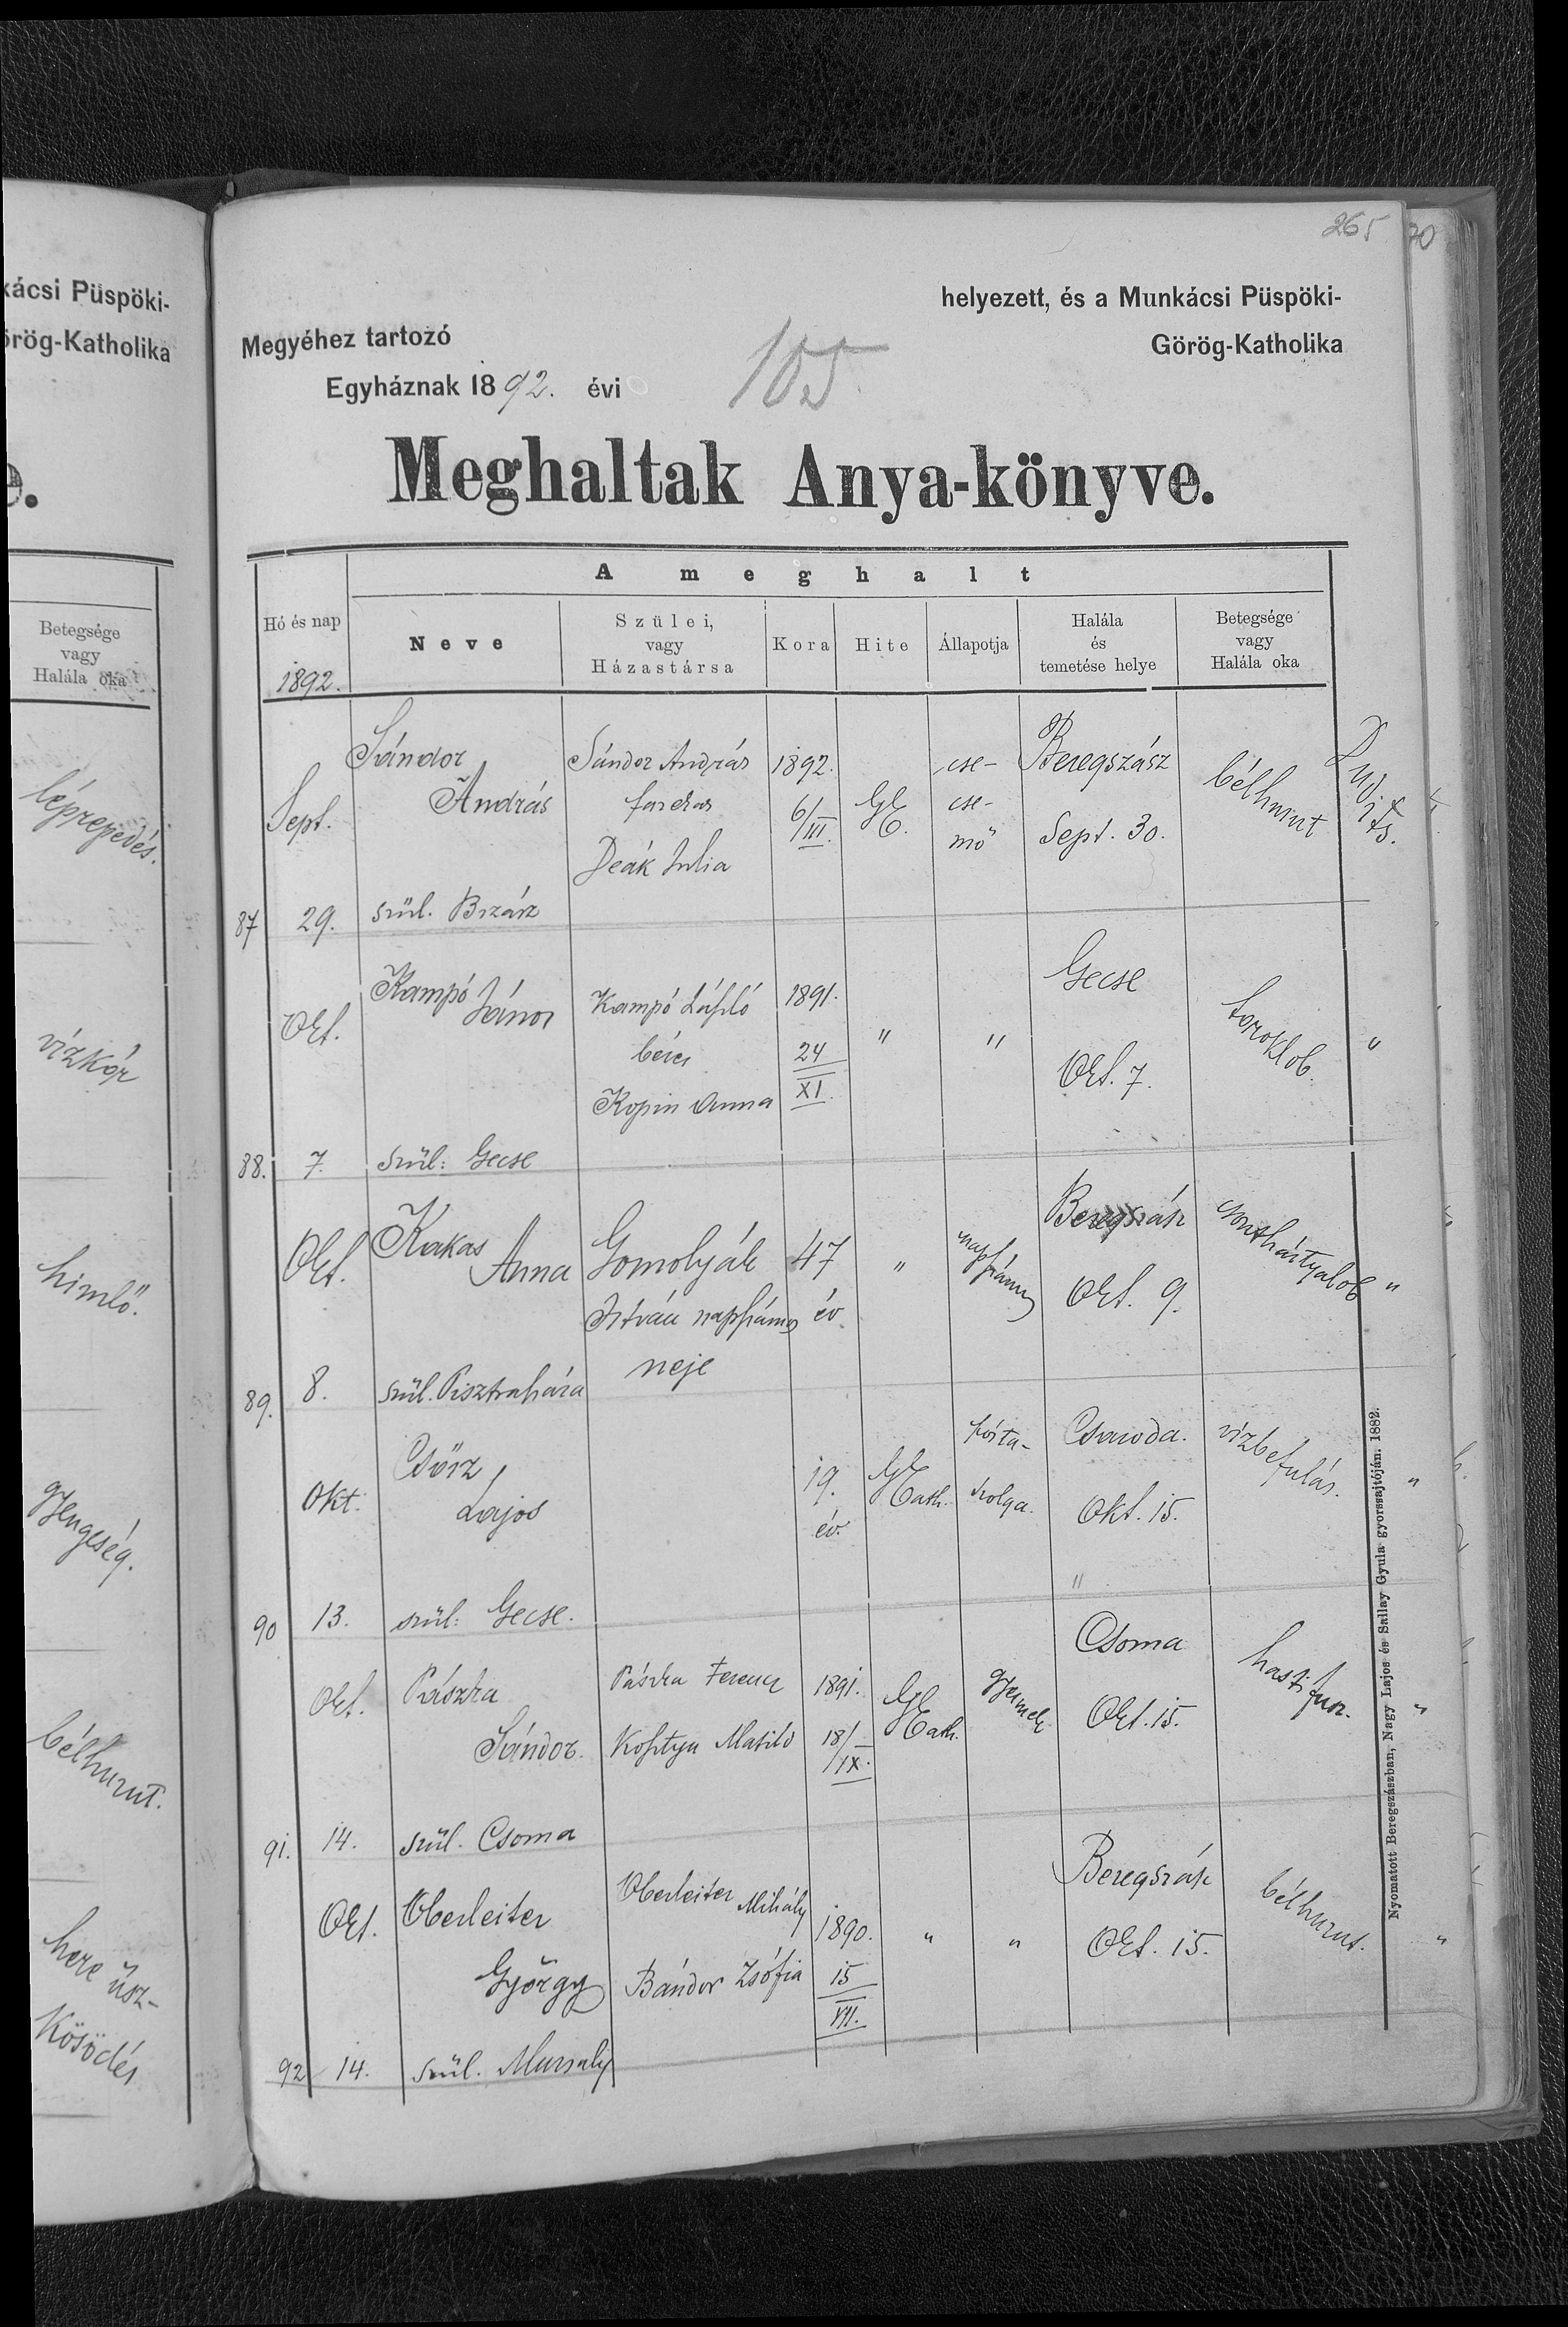 kácsi Püspöki-
örög-Katholika
e.
Betegsége
vagy
Halála oka
léprepedés.
vízkór
himlő.
gyengeség.
bélhurut.
here üsz-
kösödés
265
70
helyezett, és a Munkácsi Püspöki-
Megyéhez tartozó
Görög-Katholika
Egyháznak 1892. évi
105
Meghaltak Anya-könyve.
A meghalt
Hó és nap
1892.
Neve
Szülei,
vagy
Házastársa
Kora
Hite
Állapotja
Halála
és
temetése helye
Betegsége
vagy
Halála oka
87
Sept.
29.
Sándor
András
szül. Bszász
Sándor András
Deák Julia
1892.
6/III.
cse-
cse-
mő
Beregszász
Sept. 30.
bélhurut
88.
Okt.
7.
Kampó
János
szül: Gecse
Kampó László
béres
Kopin Anna
1891.
24
XI.
"
"
Gecse
Okt. 7.
toroklob.
"
89.
Okt.
8.
Kakas
Anna
Gomolyák
István napszámos
neje
47
év
"
napszámos
Beregszász
Okt. 9.
csonthártyalob
"
90
Okt.
13.
Csősz
Lajos
szül: Gecse.
19.
év.
GCath.
pósta-
szolga.
Csaroda.
Okt. 15.
"
vízbefulás.
"
91.
Okt.
14.
Pászta
Sándor.
szül. Csoma
Ferencz
Matild
1891.
18/IX.
GCath.
gyermek
Csoma
Okt. 15.
"
92
Okt.
14.
Oberleiter
György
szül. Muzsaly
Oberleiter Mihály
Bándor Zsófia
1890.
15
VII.
"
"
Beregszász
Okt. 15.
bélhurut.
"
Nyomatott Beregszászban, Nagy Lajos és Sallay Gyula gyorssajtóján. 1882.